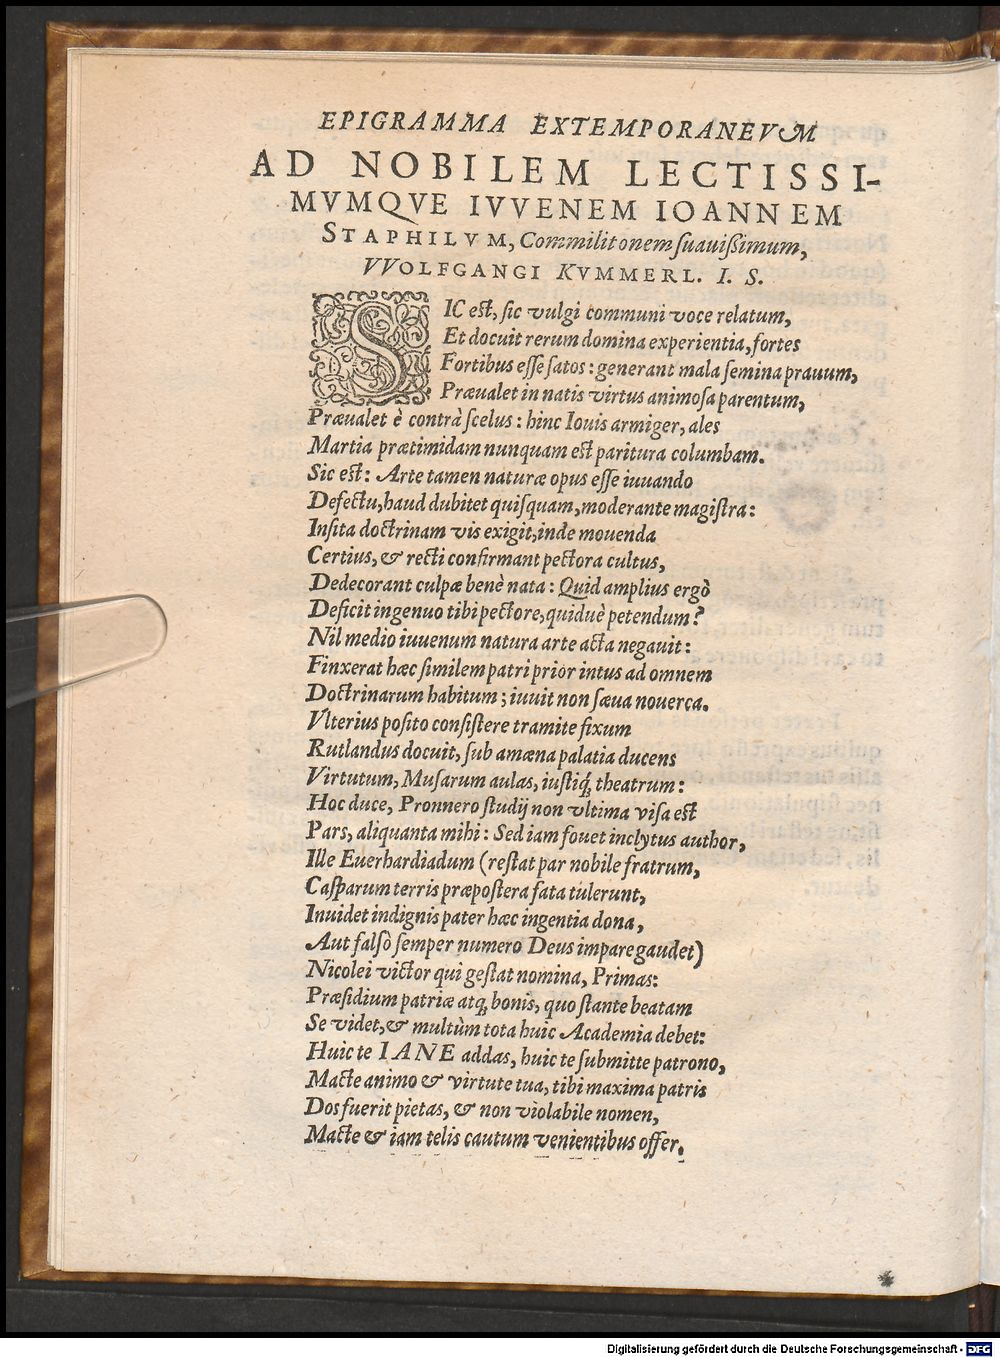 EPIGRAMMA EXTEMPORANEVM
AD NOBILEM LECTISSI-
MVMQVE IVVENEM IOANNEM
STAPHILVM, Commilitonem ſuauiſsimum,
VVOLFGANGI KVMMERL. I. S.
SIC est, ſic vulgi communi voce relatum,
Et docuit rerum domina experientia, fortes
Fortibus eſſe ſatos: generant mala ſemina prauum,
Præualet in natis virtus animoſa parentum,
Præualet è contrà ſcelus: hinc Iouis armiger, ales
Martia prætimidam nunquam est paritura columbam.
Sic est: Arte tamen naturæ opus eſſe iuuando
Defectu, haud dubitet quiſquam, moderante magiſtra:
Inſita doctrinam vis exigit, inde mouenda
Certius, & recti confirmant pectora cultus,
Dedecorant culpæ benè nata: Quid amplius ergò
Deficit ingenuo tibi pectore, quiduè petendum?
Nil medio iuuenum natura arte acta negauit:
Finxerat hæc ſimilem patri prior intus ad omnem
Doctrinarum habitum; iuuit non ſæua nouerca.
Vlterius poſito conſiſtere tramite fixum
Rutlandus docuit, ſub amæna palatia ducens
Virtutum, Muſarum aulas, iuſtiq; theatrum:
Hoc duce, Pronnero ſtudij non vltima viſa est
Pars, aliquanta mihi: Sed iam fouet inclytus author,
Ille Euerhardiadum (reſtat par nobile fratrum,
Caſparum terris præpoſtera fata tulerunt,
Inuidet indignis pater hæc ingentia dona,
Aut falſò ſemper numero Deus impare gaudet)
Nicolei victor qui geſtat nomina, Primas:
Præſidium patriæ atq; bonis, quo ſtante beatam
Se videt, & multùm tota huic Academia debet:
Huic te IANE addas, huic te ſubmitte patrono,
Macte animo & virtute tua, tibi maxima patris
Dos fuerit pietas, & non violabile nomen,
Macte & iam telis cautum venientibus offer.
Digitalisierung gefördert durch die Deutsche Forschungsgemeinschaft - DFG